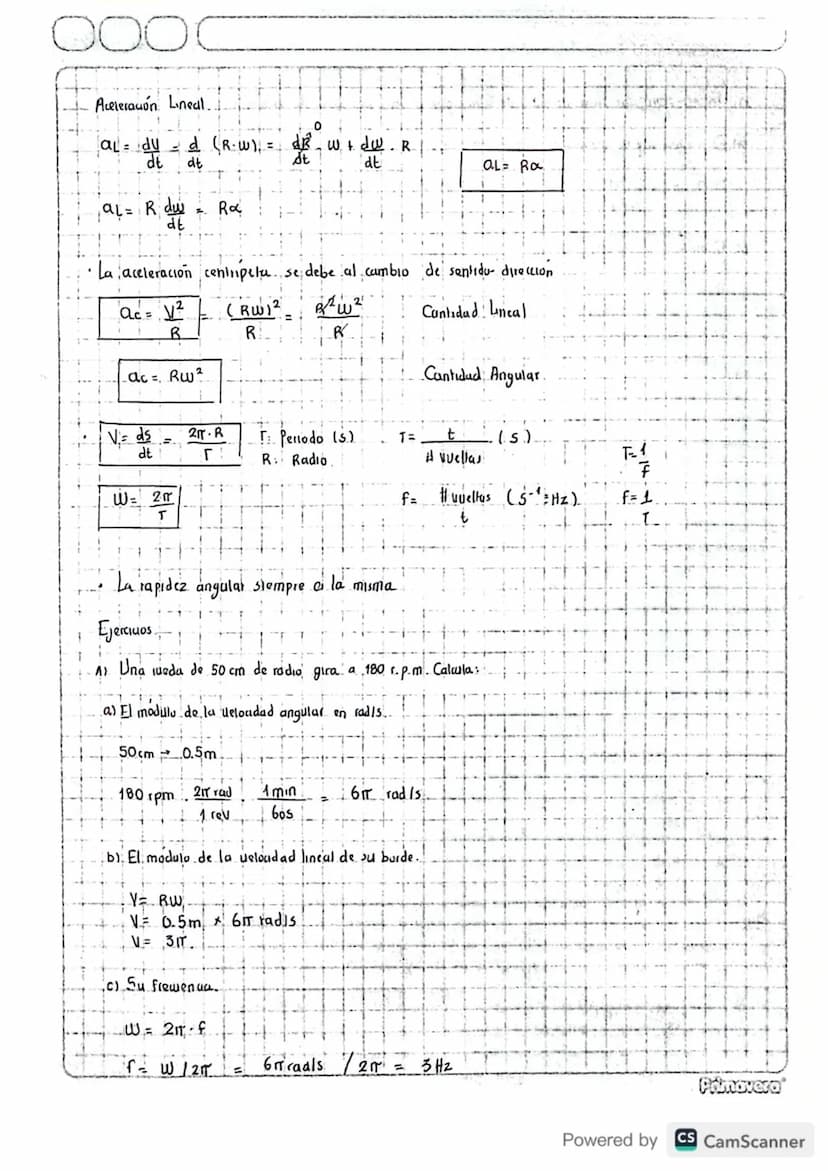 Aceleración Lineal.
aL = dv/dt = d/dt (R·w) = dR/dt⁰ · w + dw/dt · R
aL = Rα
aL = R dw/dt = Rα
· La aceleración centrípeta se debe al cambio de sentido-dirección
ac = V²/R = (Rw)²/R = R²w²/R Cantidad Lineal
ac = Rw² Cantidad Angular
· V = ds/dt = 2π·R/T T: Periodo (s) T = t/# vueltas (s)
R: Radio T = 1/f
w = 2π/T f = # vueltas/t (s⁻¹ = Hz) f = 1/T
· La rapidez angular siempre es la misma
Ejercicios
1) Una rueda de 50 cm de radio gira a 180 r.p.m. Calcula:
a) El módulo de la velocidad angular en rad/s.
50cm → 0.5m
180 rpm · 2π rad/1 rev · 1 min/60s = 6π rad/s
b) El módulo de la velocidad lineal de su borde.
V = Rw
V = 0.5m × 6π rad/s
V = 3π.
c) Su frecuencia.
w = 2π·f
f = w/2π = 6π rad/s / 2π = 3 Hz
Primavera®
Powered by CS CamScanner